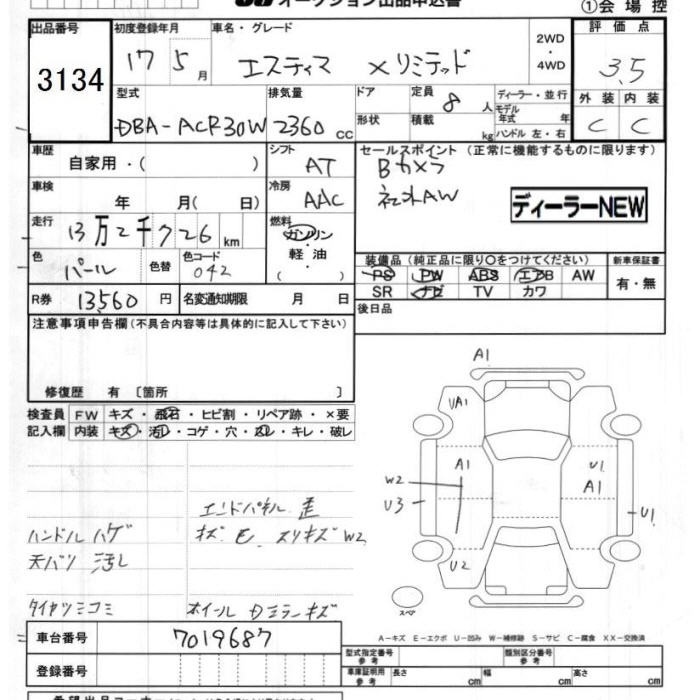 オークション出品申込書
①会場控
出品番号 初度登録年月 車名・グレード 2WD・4WD 評価点
3134 17 5月 エスティマ Xリミテッド 3.5
型式 排気量 ドア 定員 8人 ディーラー・並行 外装 内装
DBA-ACR30W 2360cc 形状 積載 kg モデル年式 年 ハンドル 左・右 C C
車歴 自家用・( ) シフト AT セールスポイント (正常に機能するものに限ります)
Bカメラ
車検 年 月( 日) 冷房 AAC 社外AW
ディーラーNEW
走行 13万2千926km 燃料 ガソリン・軽油・( )
色 パール 色替 色コード 042
装備品(純正品に限り○をつけてください) 新車保証書
PS PW ABS エアB AW 有・無
SR ナビ TV カワ
R券 13560円 名変通知期限 月 日 後日品
注意事項申告欄(不具合内容等は具体的に記入して下さい)
修復歴 有 〔箇所 〕
検査員 FW キズ・飛石・ヒビ割・リペア跡・×要
記入欄 内装 キズ・汚レ・コゲ・穴・スレ・キレ・破レ
A1
UA1
A1 U1
W2 A1
U3 U1
U2
スペア
エンドパネル 歪
ハンドル ハゲ
天バリ 汚し
タイヤツミコミ ホイール
A-キズ E-エクボ U-凹み W-補修跡 S-サビ C-腐食 XX-交換済
車台番号 7019687
型式指定番号 参考 類別区分番号 参考
登録番号 車庫証明用 参考 長さ cm 幅 cm 高さ cm